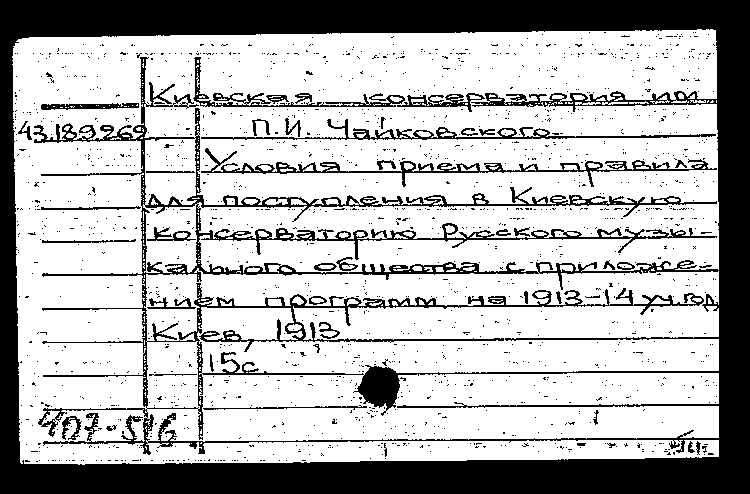 Киевская консерватория им
43.189969 П.И. Чайковского.
Условия приема и правила
для поступления в Киевскую
консерваторию Русского музы-
кального общества с приложе-
нием программ на 1913-14 уч.год
Киев, 1913
15с.
407-516